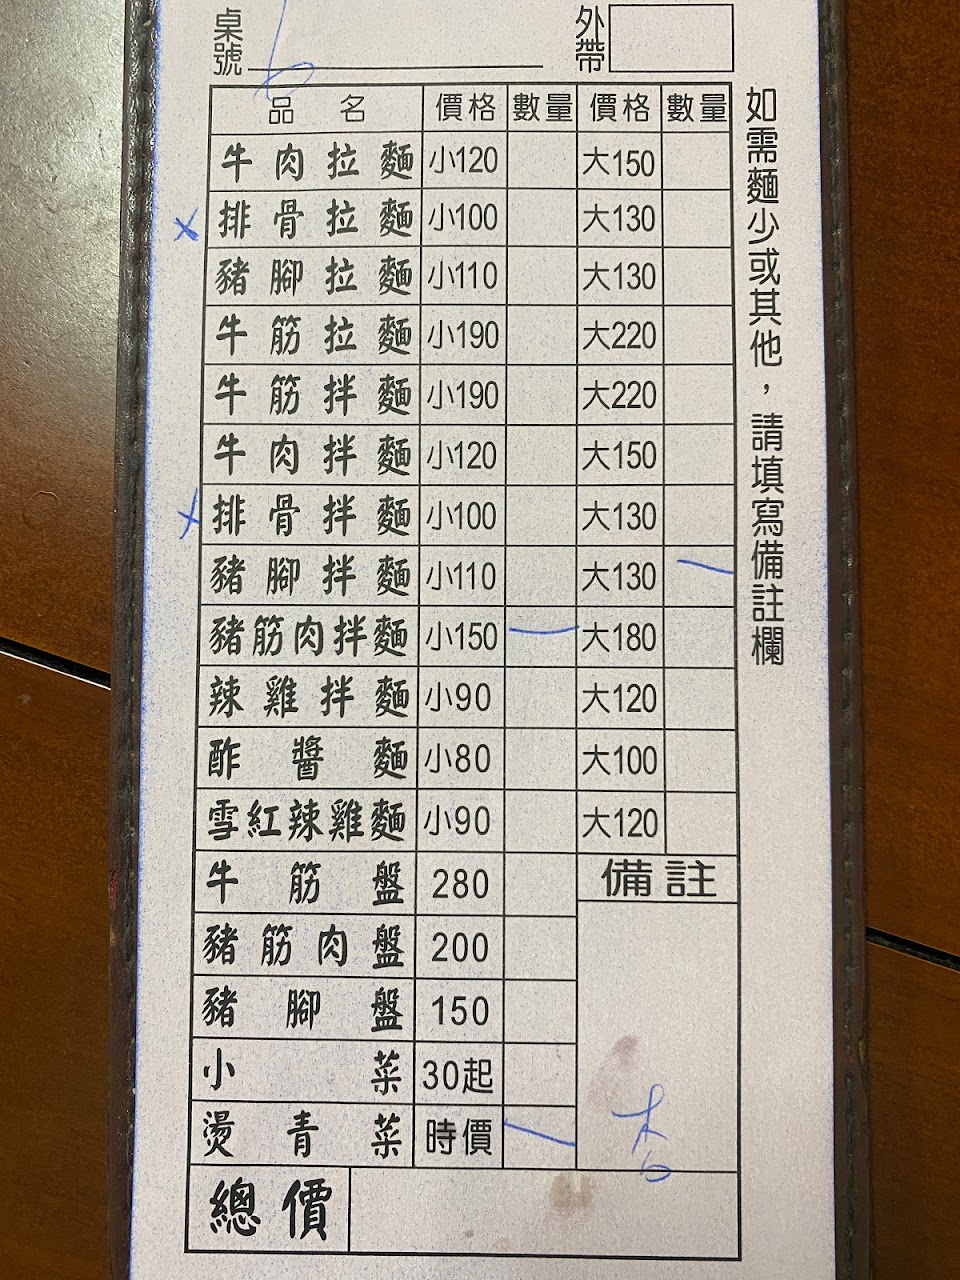 桌號 6 外帶
品名 價格 數量 價格 數量
牛肉拉麵 小120 大150
x 排骨拉麵 小100 大130
豬腳拉麵 小110 大130
牛筋拉麵 小190 大220
牛筋拌麵 小190 大220
牛肉拌麵 小120 大150
x 排骨拌麵 小100 大130
豬腳拌麵 小110 大130 一
豬筋肉拌麵 小150 一 大180
辣雞拌麵 小90 大120
酢醬麵 小80 大100
雪紅辣雞麵 小90 大120
牛筋盤 280 備註
豬筋肉盤 200
豬腳盤 150
小菜 30起
燙青菜 時價 一
總價
如需麵少或其他，請填寫備註欄